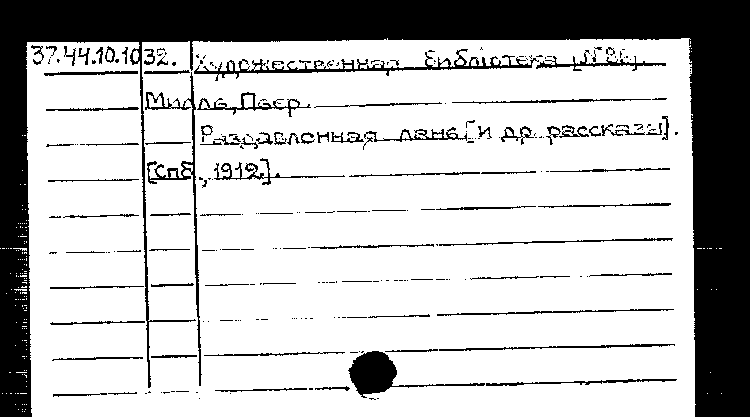 37.44.10.1032. Художественная библiотека [№26].
Милль, Пьер.
Раздавленная лань [и др. рассказы].
[Спб., 1912.].